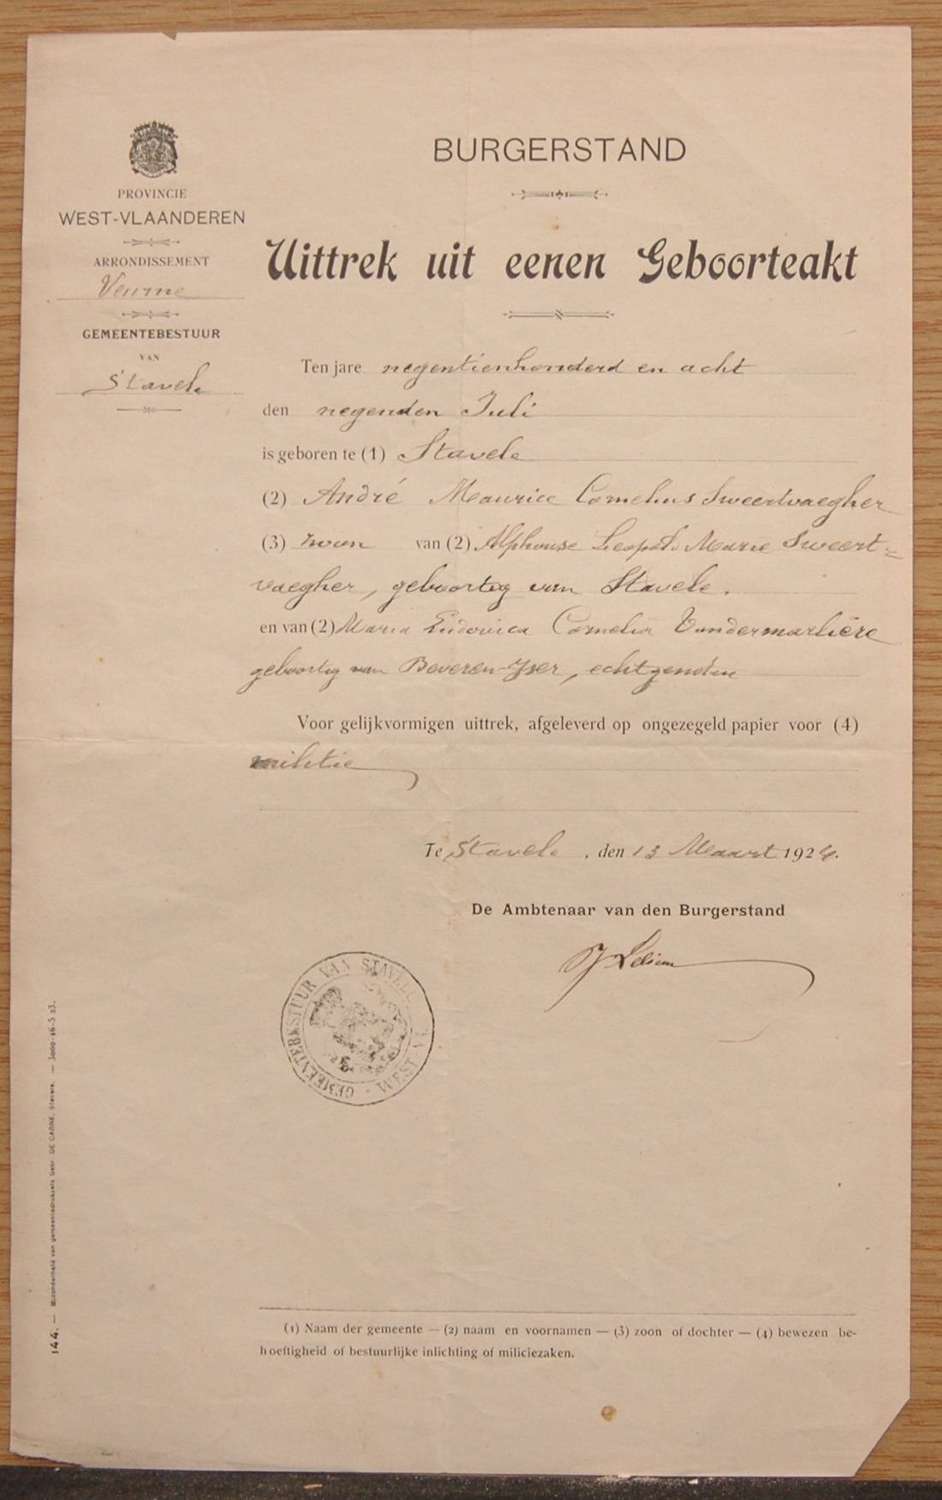 PROVINCIE
WEST-VLAANDEREN
ARRONDISSEMENT
Veurne
GEMEENTEBESTUUR
VAN
Stavele
BURGERSTAND
Uittrek uit eenen Geboorteakt
Ten jare negentienhonderd en acht
den negenden Juli
is geboren te (1) Stavele
(2) André Maurice Cornelius Sweertvaegher
(3) zoon van (2) Alphonse Leopold Marie Sweert=
vaegher, geboortig van Stavele.
en van (2) Maria Ludovica Cornelia Vandermarlière
geboortig van Beveren-Yser, echtgenden
Voor gelijkvormigen uittrek, afgeleverd op ongezegeld papier voor (4)
militie
Te Stavele, den 13 Maart 1924.
De Ambtenaar van den Burgerstand
GEMEENTEBESTUUR VAN STAVELE
WEST VL
144. — Bijzonderheid van gemeentedrukwerk Gebr. DE CADRÉ, Stavele. —
(1) Naam der gemeente — (2) naam en voornamen — (3) zoon of dochter — (4) bewezen be-
hoeftigheid of bestuurlijke inlichting of miliciezaken.